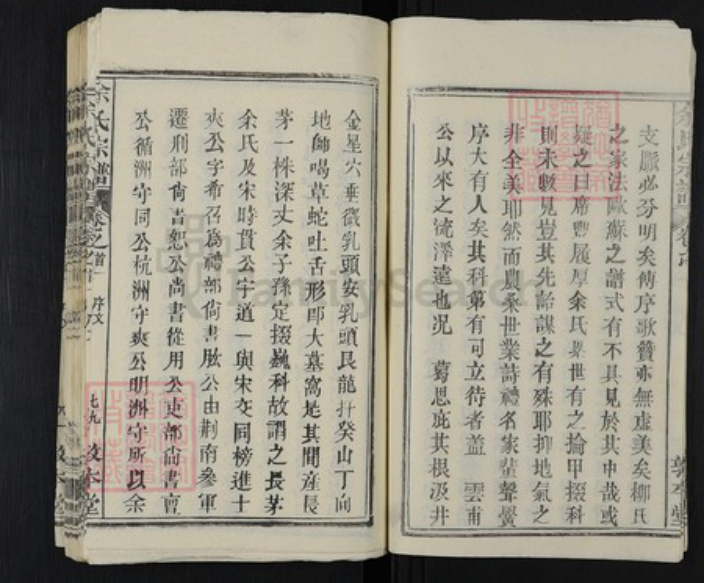 支脈必分明矣傳序歌贊亦無虛美矣柳氏
之家法歐蘇之譜式有不具見於其中哉或
疑之曰席豐履厚余氏世有之掄甲掇科
則未數見豈其先詒謀之有殊耶抑地氣之
非全美耶然而農桑世業詩禮名家蜚聲黌
序大有人矣其科第有可立待者蓋 雲甫
公以來之流澤遠也況 蒭思庇其根汲井
余氏宗譜
敦本堂
金星穴垂微乳頭安乳頭艮龍扦癸山丁向
地師喝草蛇吐舌形即大墓窩是其間產長
茅一株深丈余子孫定掇巍科故謂之長茅
余氏及宋時貫公字道一與宋交同榜進士
爽公字希召為禮部尚書肱公由荆南參軍
遷刑部尚書恕公尚書從用公吏部尚書官
公循洲守同公杭洲守爽公明洲守所以余
余氏宗譜 卷之首一 序文
七九 敦本堂
FamilySearch